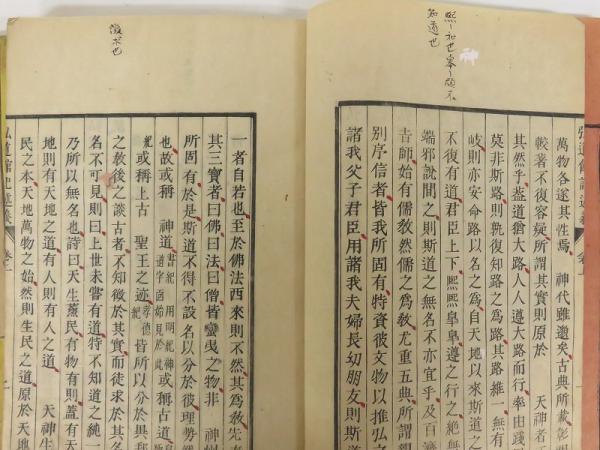 熙〻和也皞〻
知道也
神
萬物各遂其性焉 神代雖邈矣古典所載彰
較著不復容疑所謂其實則原於 天神者
其然乎蓋道猶大路人人遵大路而行率由踐
莫非斯路則孰復知路之爲路其路維一無有
岐則亦安命路以名之爲自天地以來斯道之
不復有道君臣上下熙熙皐皐遵之行之絶
端邪說聞之則斯道之無名不亦宜乎及百濟
吉師始有儒敎然儒之爲敎尤重五典所謂
別序信者皆我所固有特資彼文物以推弘之
諸我父子君臣用諸我夫婦長幼朋友則斯
徵求也
一者自若也至於佛法西來則不然其爲敎先
其三寶者曰佛曰法曰僧皆蠻夷之物非 神州
所固有於是斯道不得不設名以分於彼理勢
也故或稱 神道書紀用明紀神道字面始見於此或稱古道
紀或稱上古 聖王之迹孝德紀皆所以分於異
之敎後之談古者不知徵於其實而徒求於其名
名不可見則曰上世未嘗有道特不知道之純一
乃所以無名也詩曰天生蒸民有物有則蓋有天
地則有天地之道有人則有人之道 天神生
民之本天地萬物之始然則生民之道原於天地
弘道館記述義 卷上